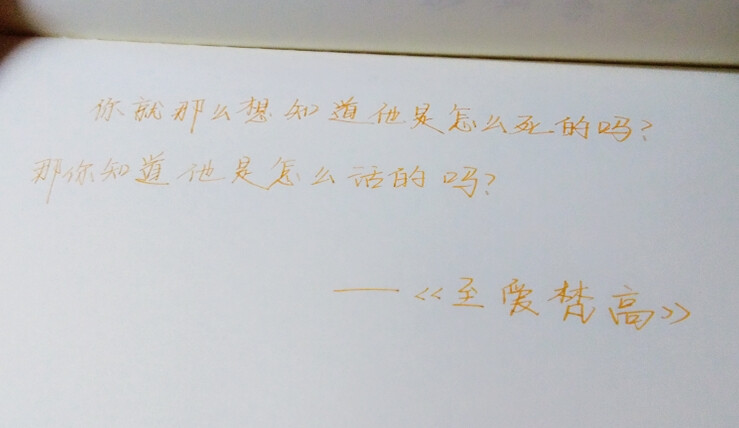 你就那么想知道他是怎么死的吗?
那你知道他是怎么活的吗?
——《至爱梵高》